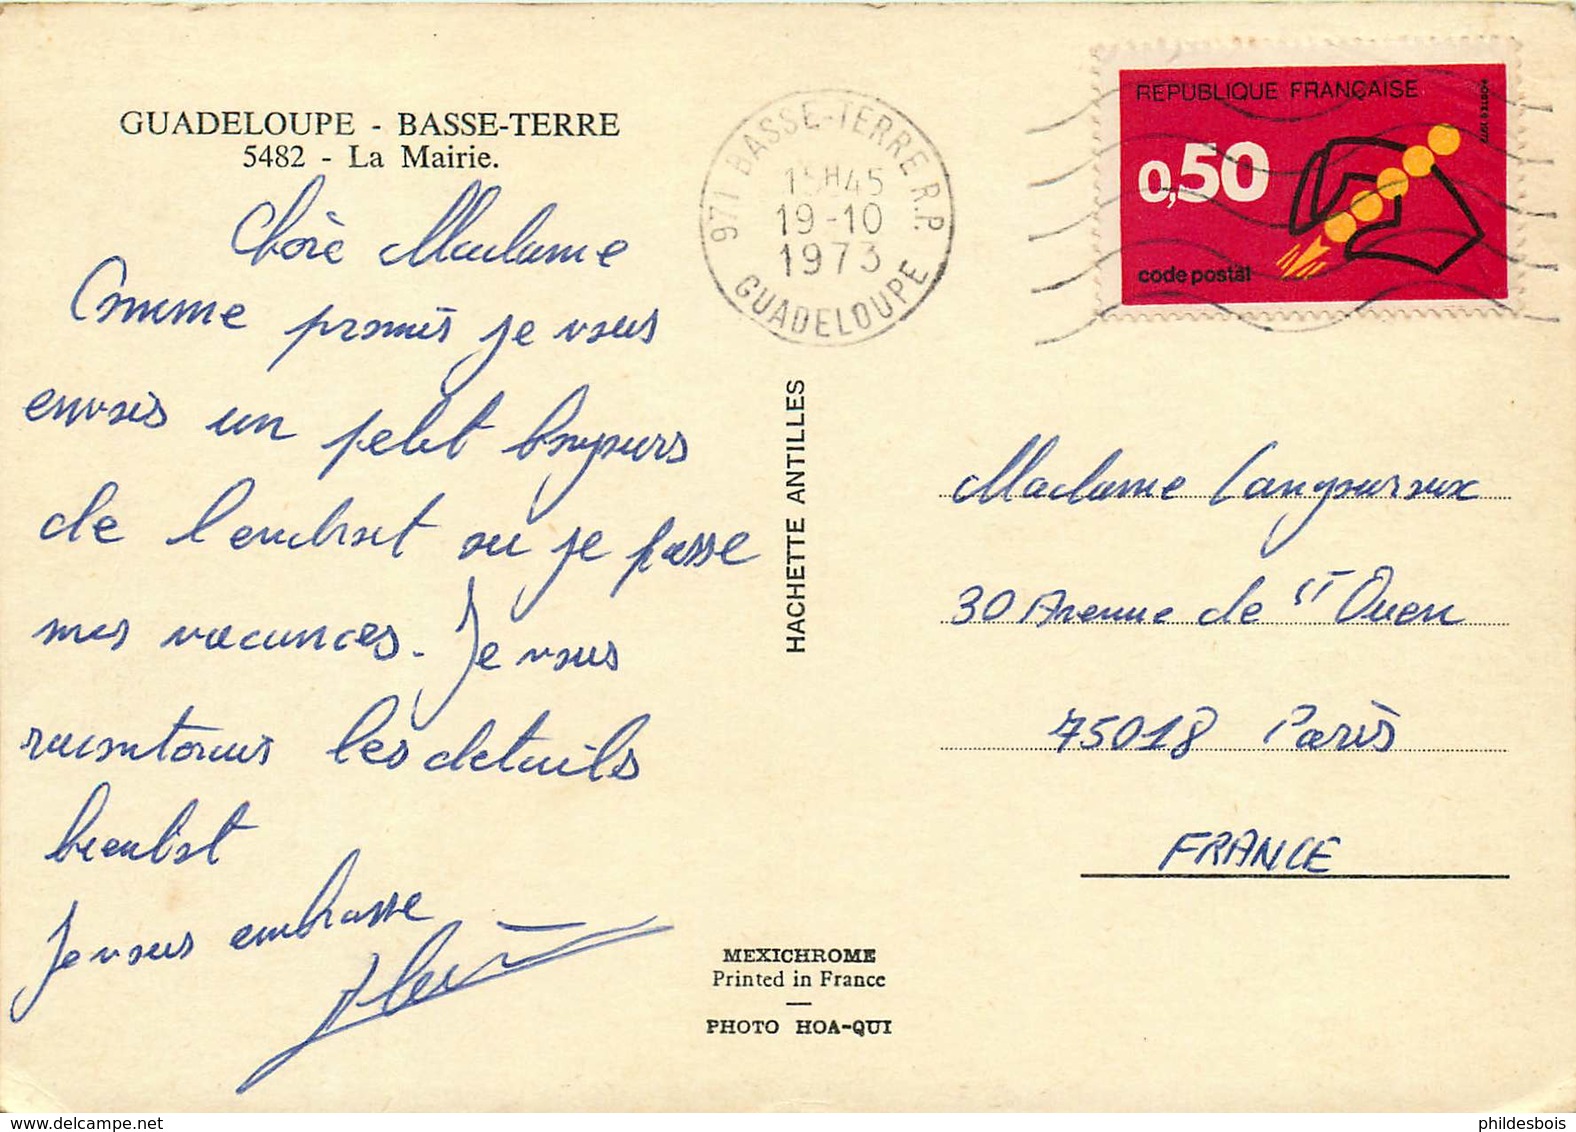 GUADELOUPE - BASSE-TERRE
5482 - La Mairie.
Chère Madame
Comme promis je vous
envois un petit bonjours
de l'endroit ou je passe
mes vacances. Je vous
racontorais les details
bientot
Je vous embrasse
971 BASSE-TERRE R.P.
15H45
19-10
1973
GUADELOUPE
REPUBLIQUE FRANÇAISE
0,50
code postal
POSTES 1972
HACHETTE ANTILLES
Madame Langouroux
30 Avenue de ST Ouen
75018 Paris
FRANCE
MEXICHROME
Printed in France
PHOTO HOA-QUI
phildesbois